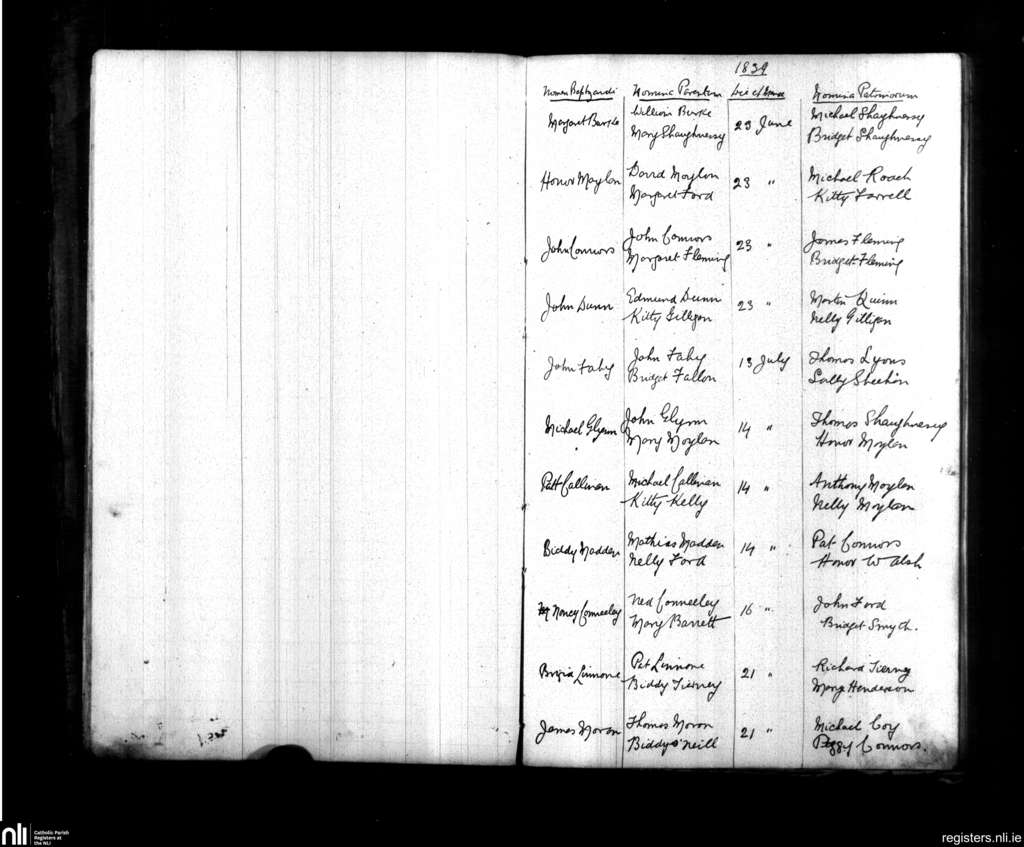 1839
Nomen Baptizandi Nomina Parentum Die et Mense Nomina Patrinorum
Margaret Burke William Burke 23 June Michael Shaughnessy
Mary Shaughnessy Bridget Shaughnessy
Honor Moylan David Moylan 23 " Michael Roach
Margaret Ford Kitty Farrell
John Connors John Connors 23 " James Fleming
Margaret Fleming Bridget Fleming
John Dunn Edmund Dunn 23 " Martin Quinn
Kitty Gilligan Nelly Gilligan
John Fahy John Fahy 13 July Thomas Lyons
Bridget Fallon Sally Sheehan
Michael Glynn John Glynn 14 " Thomas Shaughnessy
Mary Moylan Honor Moylan
Patt Callinan Michael Callinan 14 " Anthony Moylan
Kitty Kelly Nelly Moylan
Biddy Madden Mathias Madden 14 " Pat Connors
Nelly Ford Honor Walsh
Nancy Conneeley Ned Conneeley 16 " John Ford
Mary Barrett Bridget Smyth.
Brigid Linnone Pat Linnone 21 " Richard Tierney
Biddy Tierney Mary Henderson
James Moran Thomas Moran 21 " Michael Coy
Biddy O'Neill Peggy Connors.
nli Catholic Parish
Registers at
the NLI
registers.nli.ie